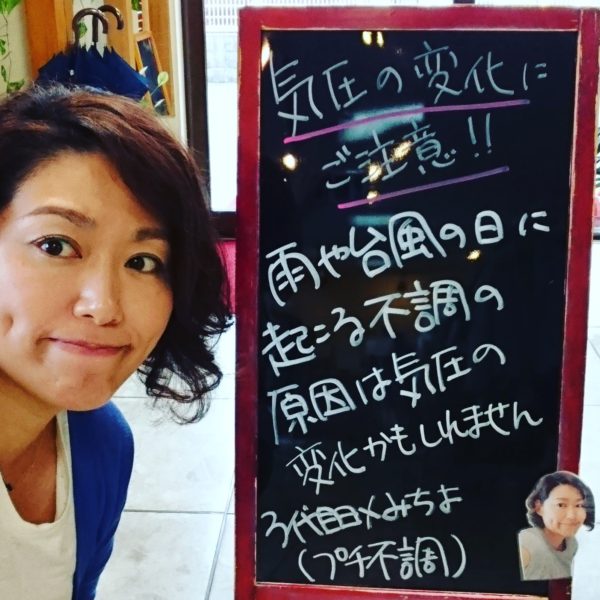 気圧の変化に
ご注意!!
雨や台風の日に
起こる不調の
原因は気圧の
変化かもしれません
3代目×みちよ
(プチ不調)